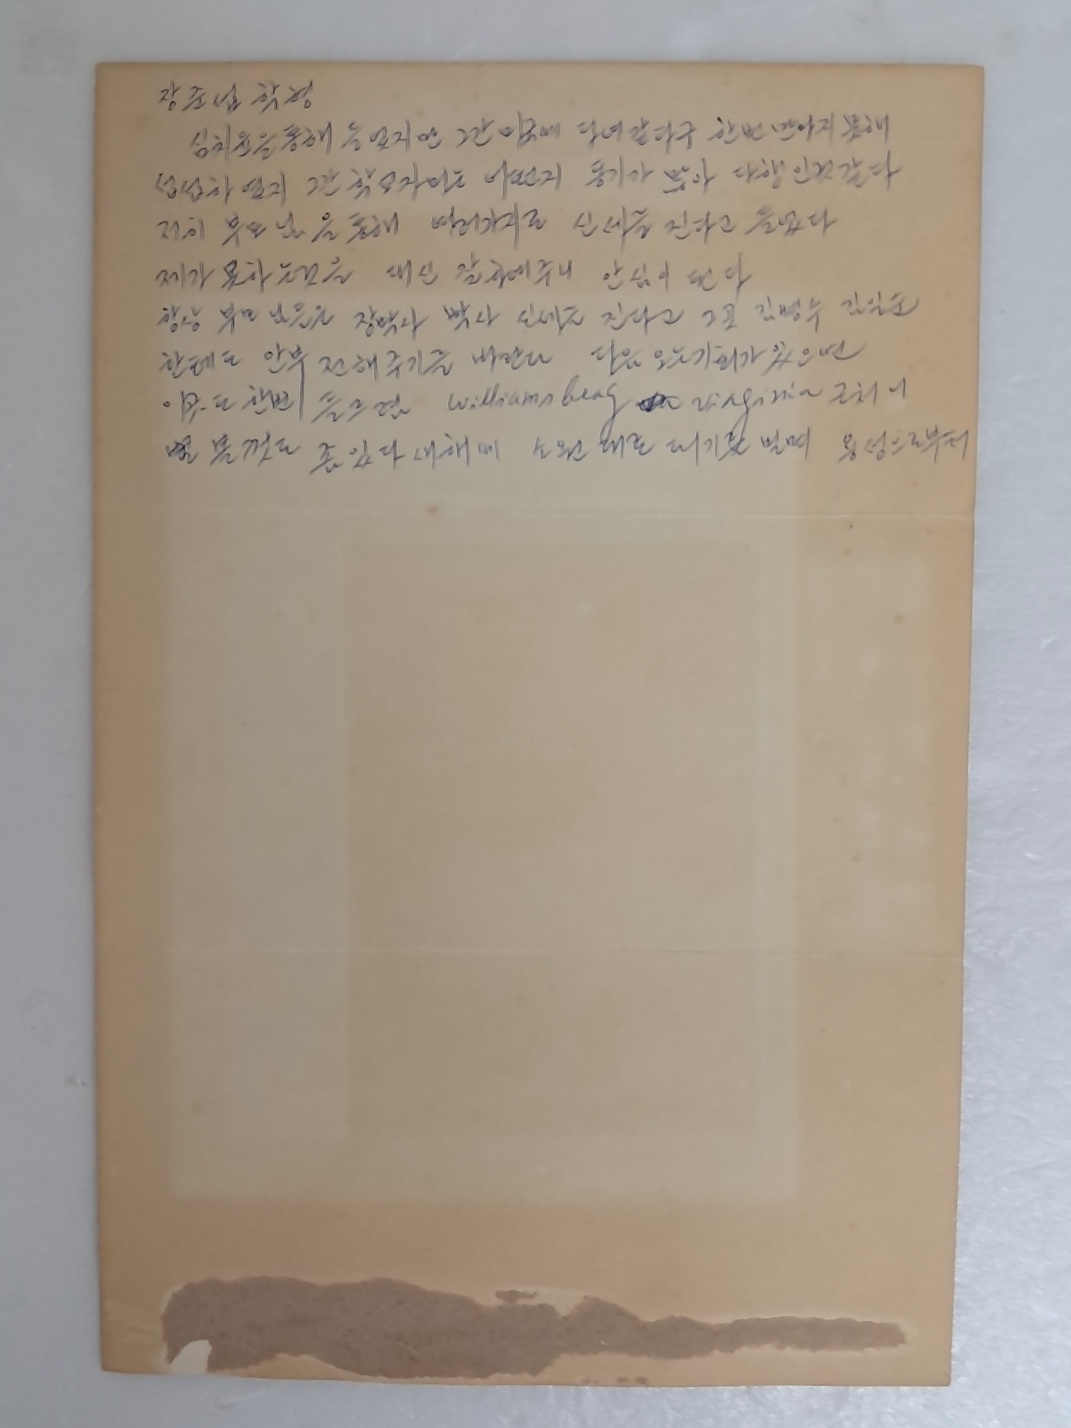 장준섭 학형
심치운을 통해 들었지만 그간 미국에 다녀갔다구 한번 만나지 못해
섭섭하였지 그간 학교 자미는 어떤지 동기가 많아 다행인것 같다
저희 부모님을 통해 여러가지로 신세를 진다고 들었다
제가 못하는것을 대신 잘 하여주니 안심이 된다
항상 부모님들은 장박사 박사 신세를 진다고 그곳 김명수
한테도 안부 전해주기를 바란다 다음 오는기회가 있으면
이곳도 한번 들르렴 Williamsberg Virginia 근처니
별 볼것도 좀 있다 새해에 소원대로 되기를 빌며 용성으로부터